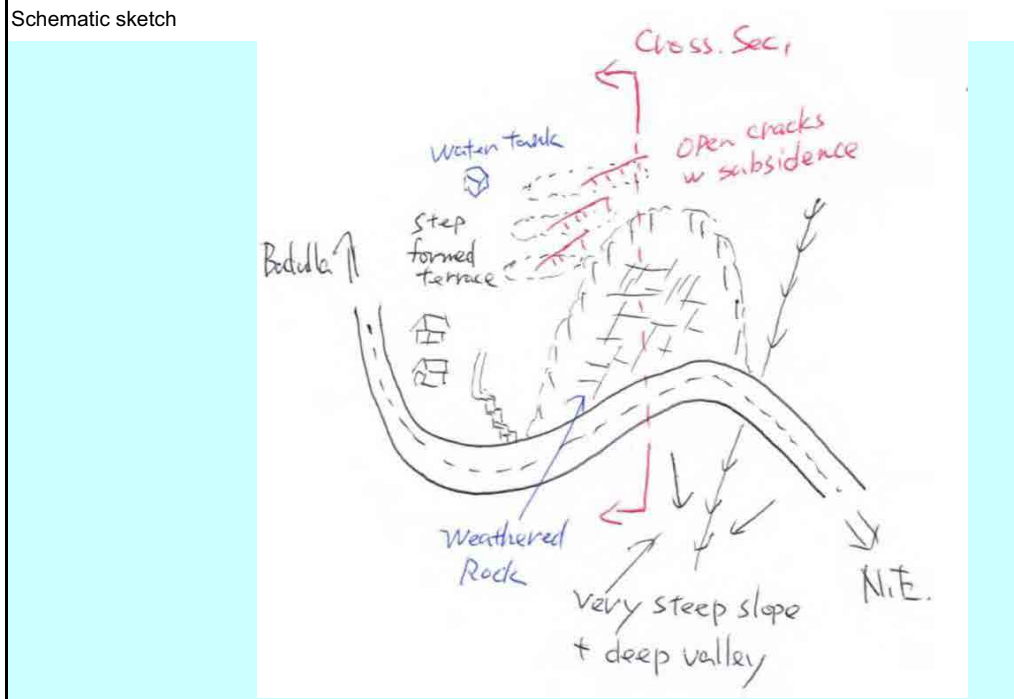 Schematic sketch
Cross. Sec,
Water tank
Open cracks
w subsidence
Step
formed
terrace
Badulla
Weathered
Rock
Very steep slope
+ deep valley
N.E.